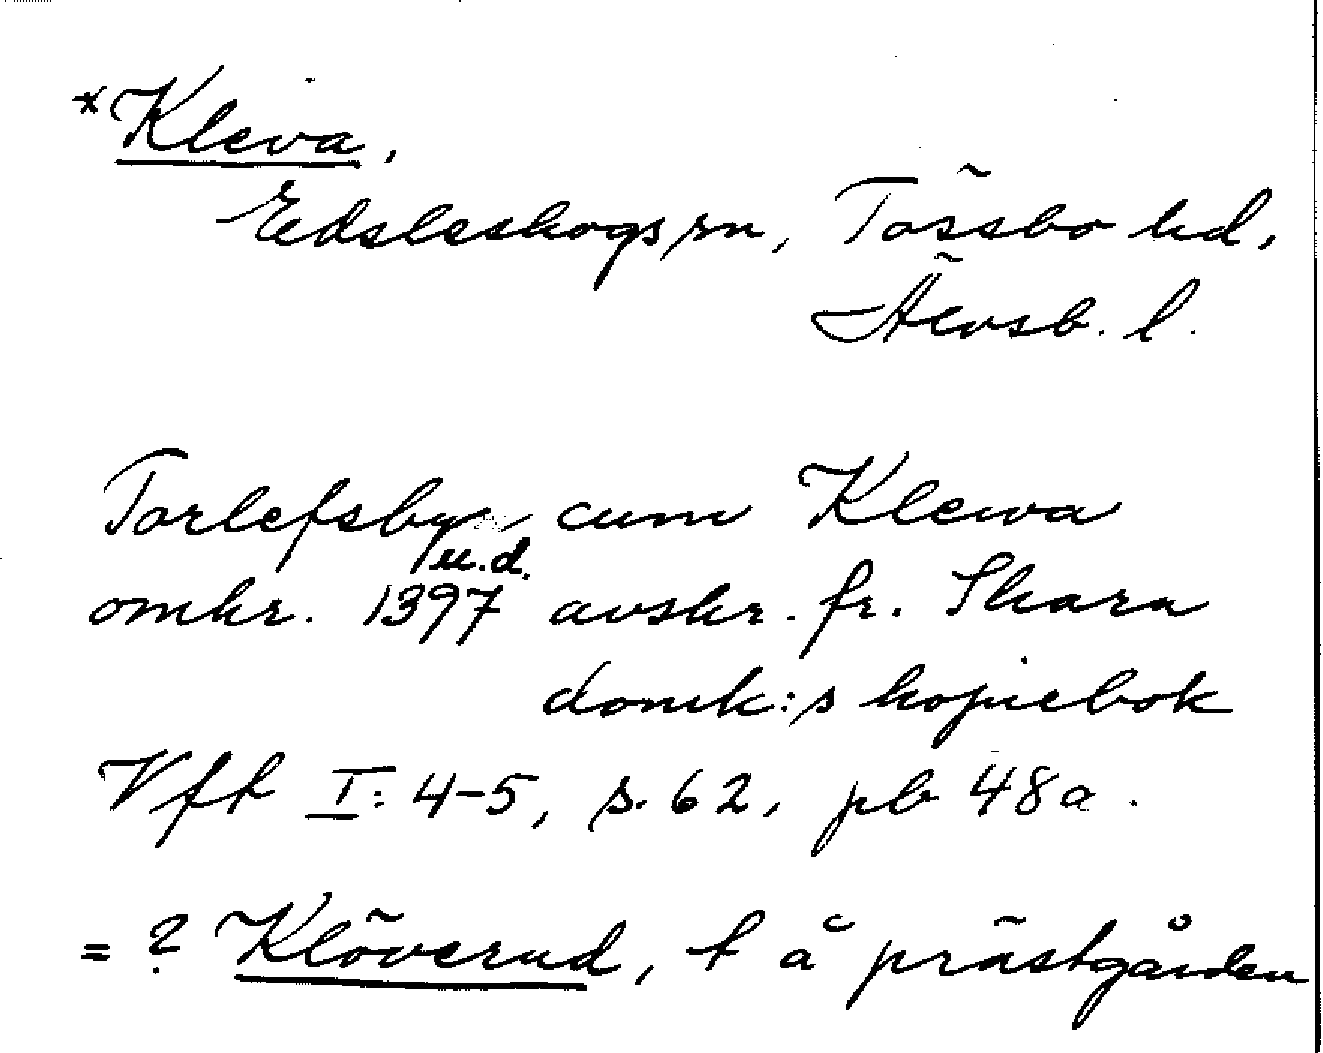 *Kleva,
Edsleskogs sn, Tössbo hd,
Älvsb. l.
Torlefsby cum Klewa
u.d.
omkr. 1397 avskr. fr. Skara
domk:s kopiebok
Vfk I: 4-5, s. 62, pb 48a.
= ? Klöverud, t å prästgården